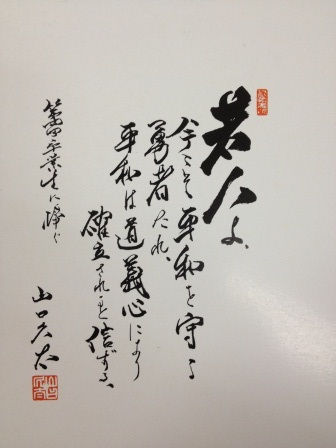 若人よ、
今こそ平和を守る
勇者たれ、
平和は道義心により
確立されると信ずる、
卒業生に捧ぐ
山口久太